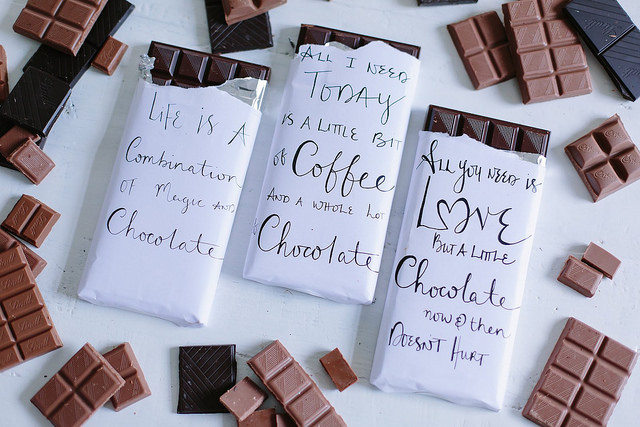 LIFE IS A
Combination
OF Magic AND
Chocolate
ALL I NEED
TODAY
IS A LITTLE BIT
OF Coffee
AND A WHOLE LOT
Chocolate
ALL YOU NEED IS
LOVE
BUT A LITTLE
Chocolate
now & then
DOESN'T HURT